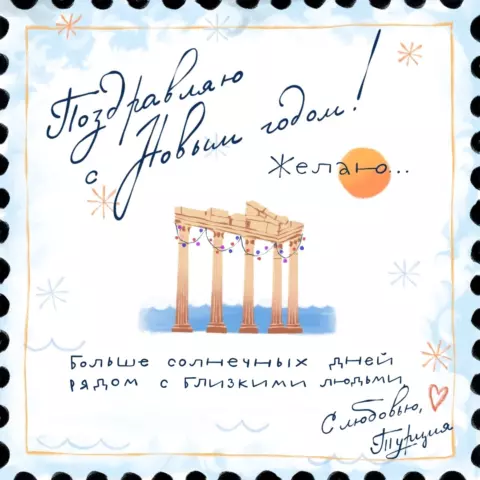 Поздравляю
с Новым годом!
Желаю...
Больше солнечных дней
рядом с близкими людьми
С любовью,
Турция